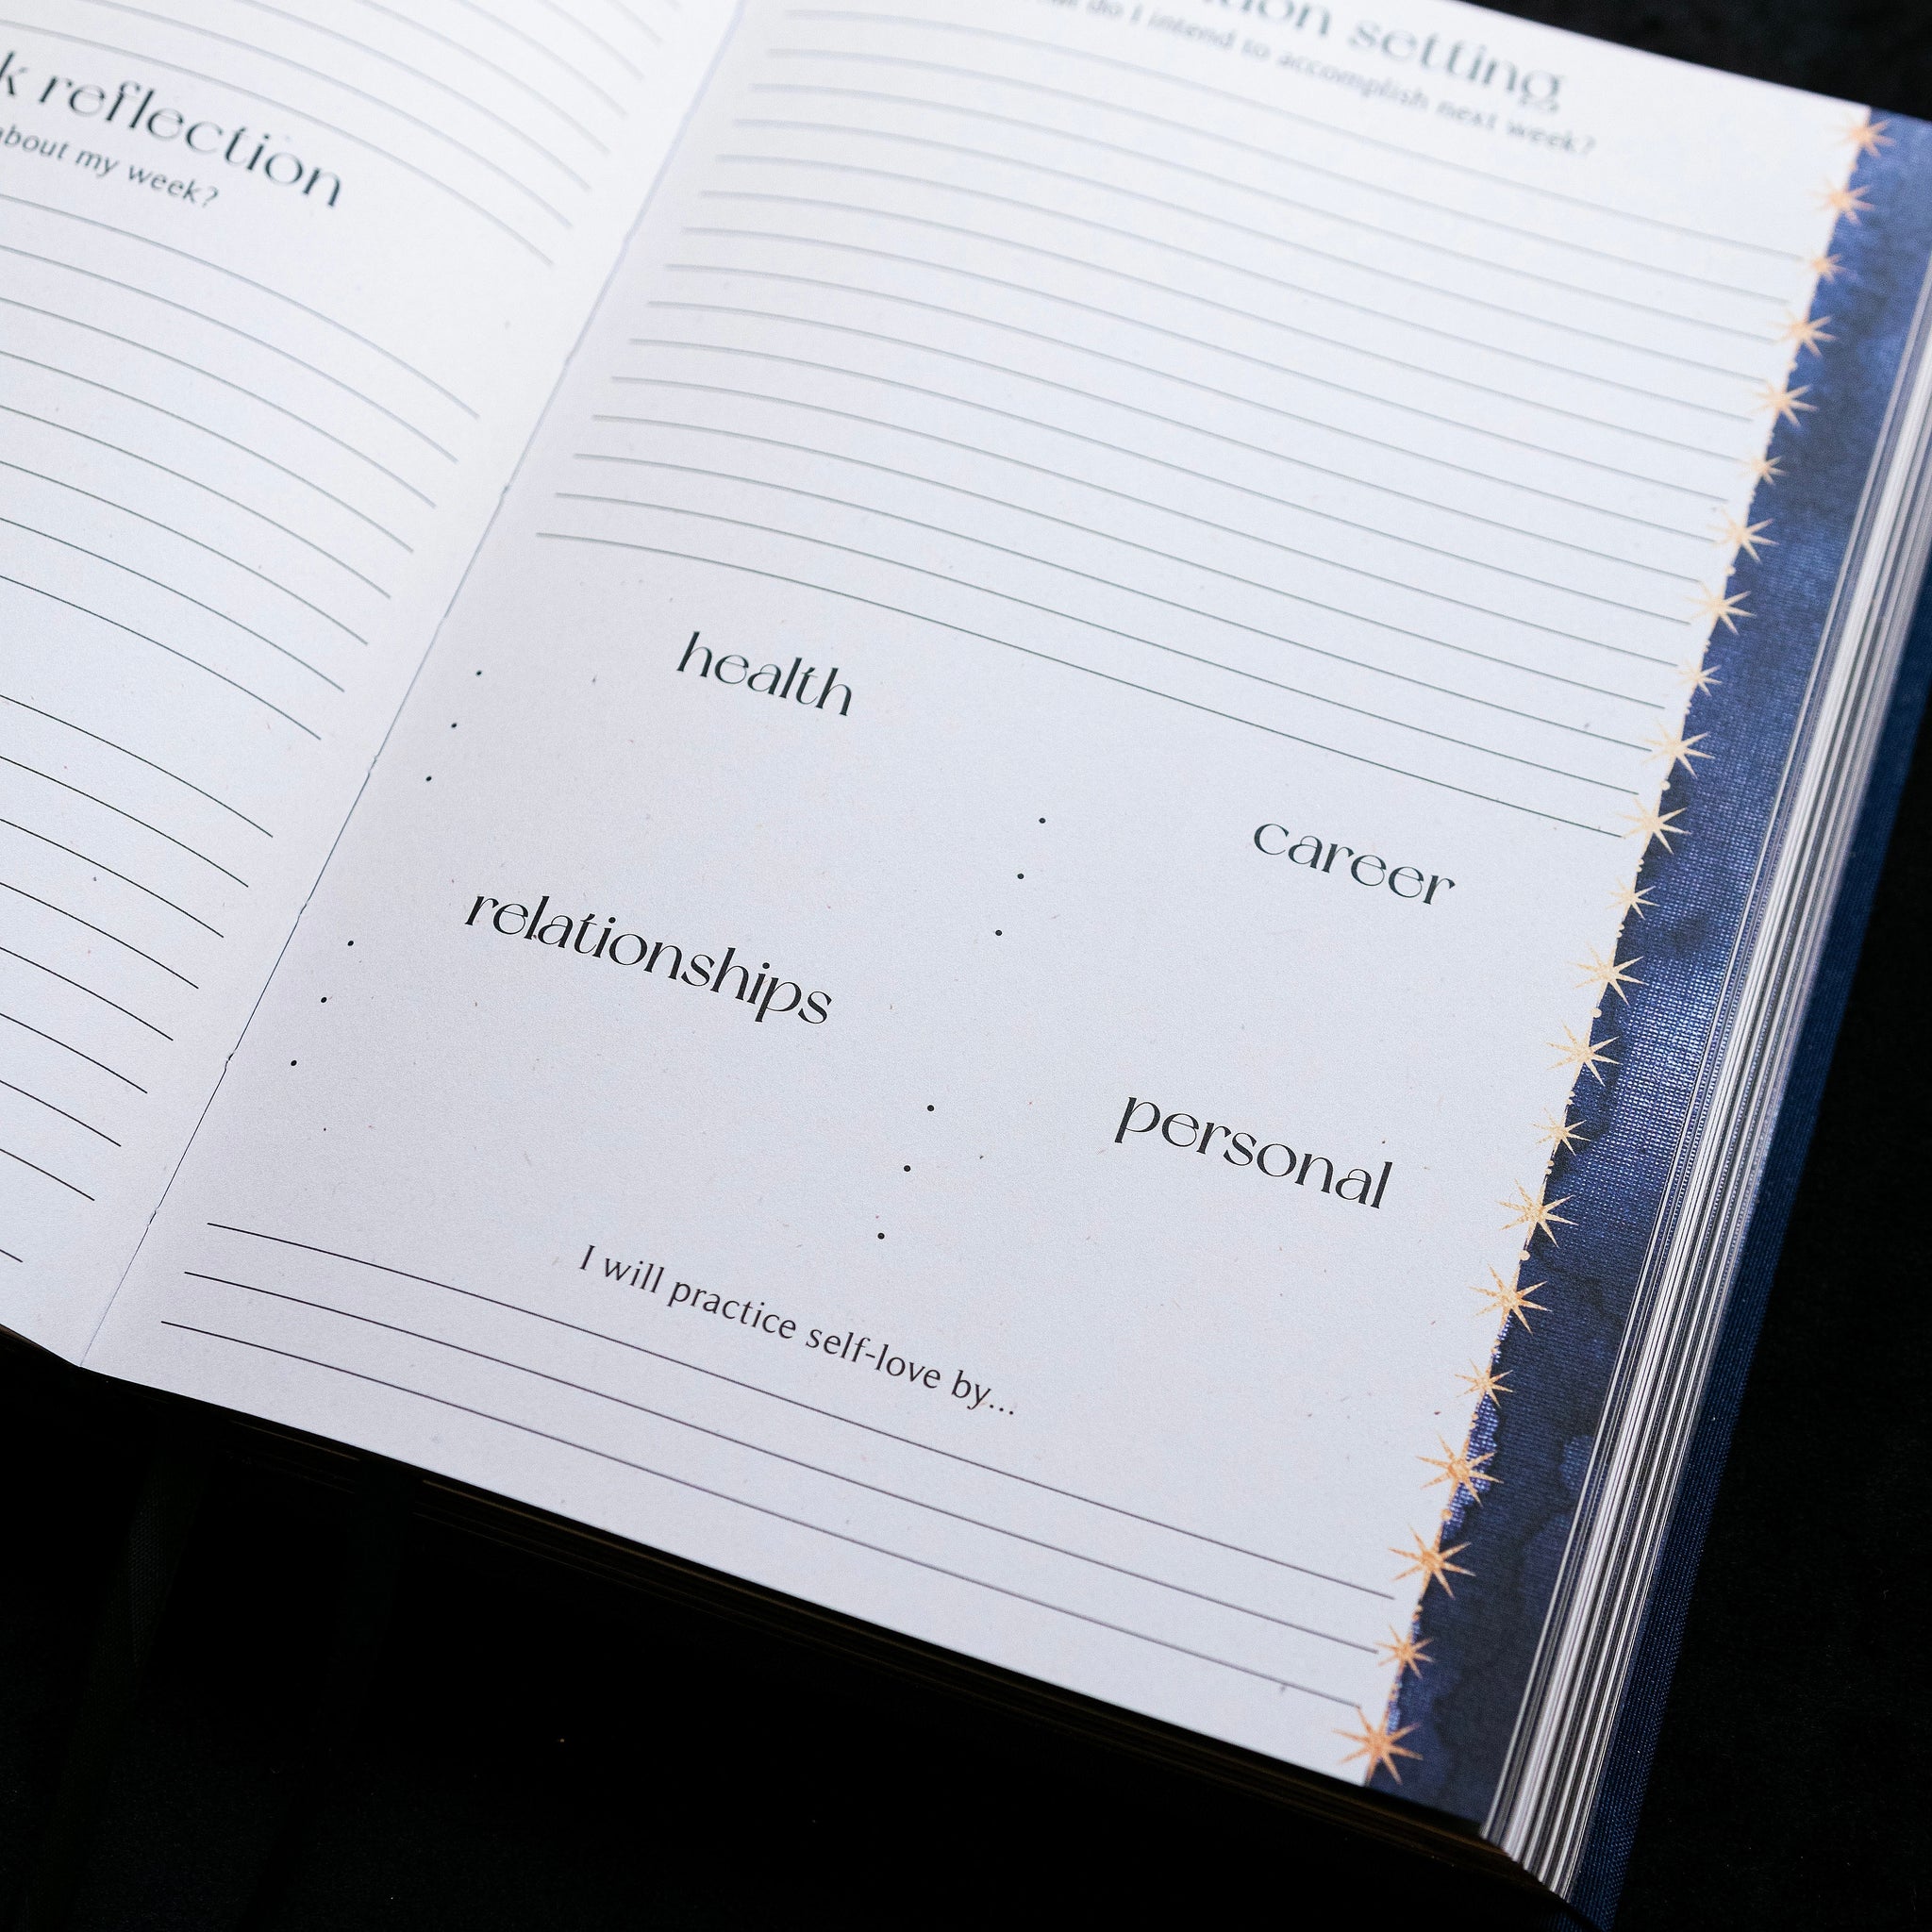 k reflection
about my week?
tion setting
do I intend to accomplish next week?
health
career
relationships
personal
I will practice self-love by...